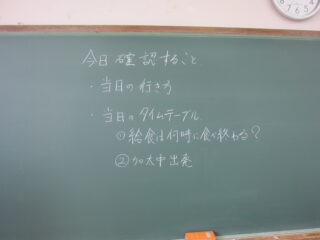 今日確認すること
・当日の行き方
・当日のタイムテーブル
①給食は何時に食べ終わる?
②加太中出発